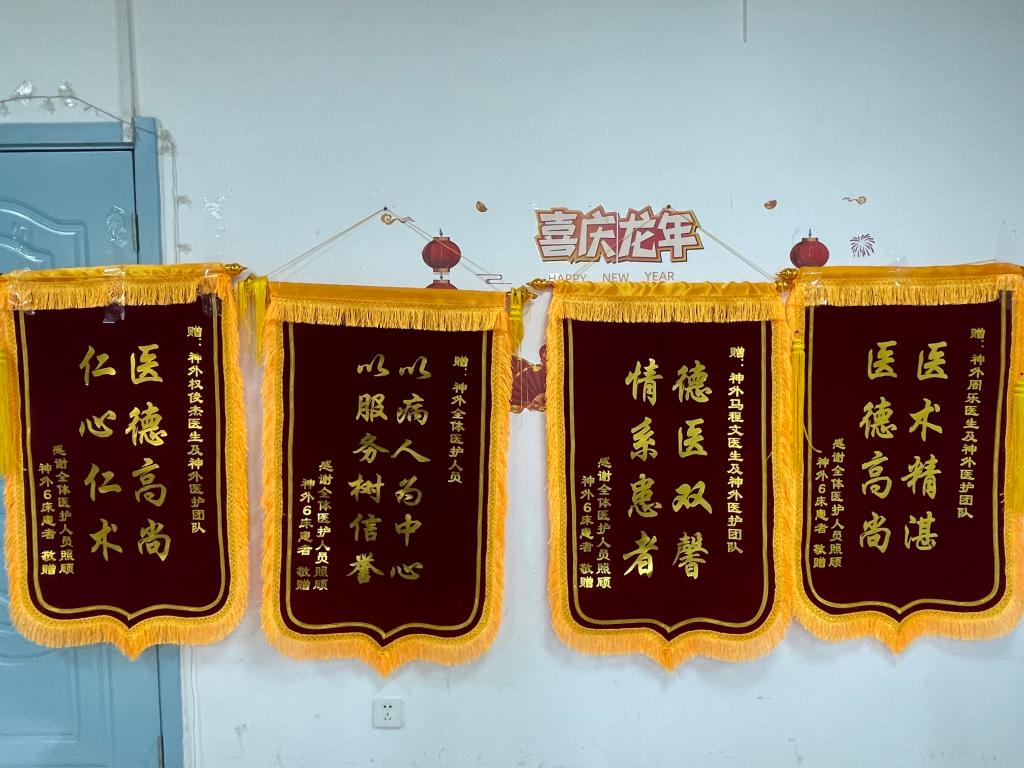 喜庆龙年
HAPPY NEW YEAR
赠：神外权俊杰医生及神外医护团队
医德高尚
仁心仁术
感谢全体医护人员照顾
神外6床患者 敬赠
赠：神外全体医护人员
以病人为中心
以服务树信誉
感谢全体医护人员照顾
神外6床患者 敬赠
赠：神外马程文医生及神外医护团队
德医双馨
情系患者
感谢全体医护人员照顾
神外6床患者 敬赠
赠：神外周乐医生及神外医护团队
医术精湛
医德高尚
感谢全体医护人员照顾
神外6床患者 敬赠